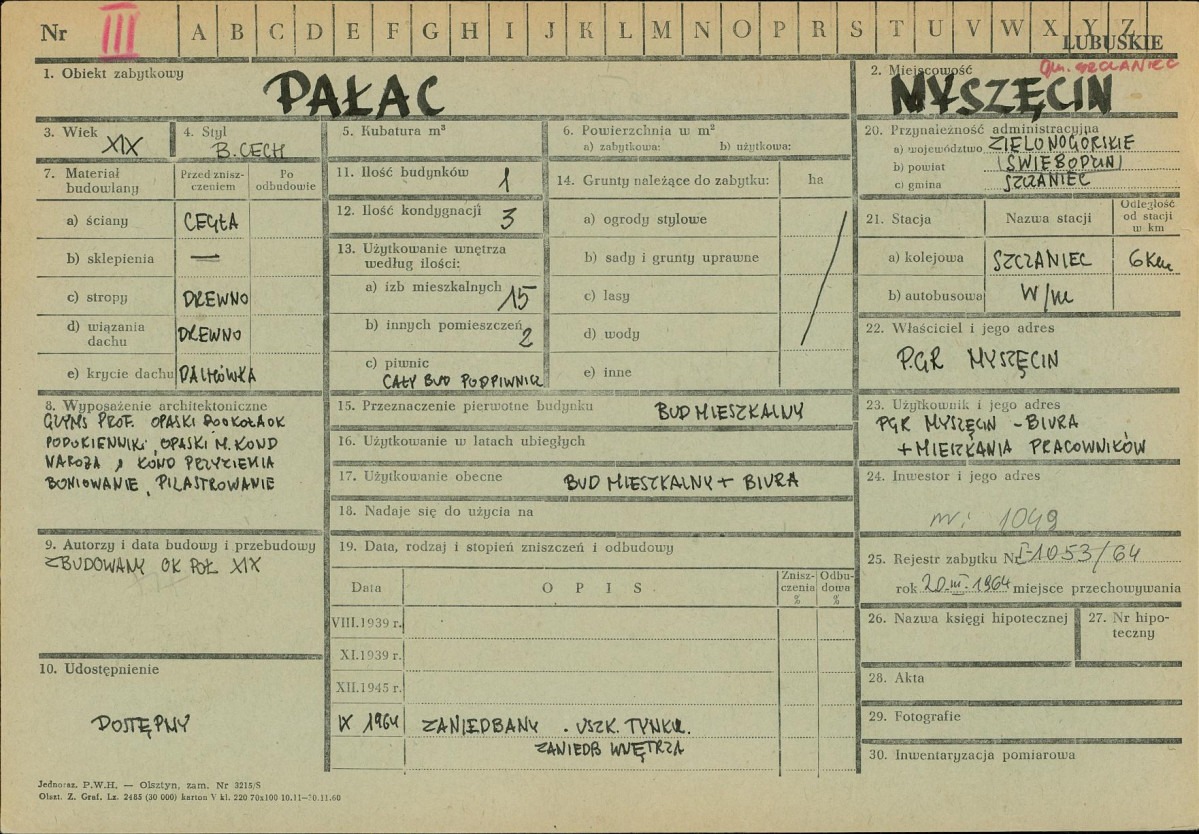 Nr III A B C D E F G H I J K L M N O P R S T U V W X Y Z
LUBUSKIE
gm. SZCZANIEC
1. Obiekt zabytkowy
PAŁAC
2. Miejscowość
MYSZĘCIN
3. Wiek
XIX
4. Styl
B. CECH
5. Kubatura m³
6. Powierzchnia w m²
a) zabytkowa: b) użytkowa:
20. Przynależność administracyjna
a) województwo ZIELONOGÓRSKIE
b) powiat (ŚWIEBODZIN)
c) gmina SZCZANIEC
7. Materiał budowlany
Przed znisz-
czeniem
Po
odbudowie
a) ściany CEGŁA
b) sklepienia —
c) stropy DREWNO
d) wiązania
dachu DREWNO
e) krycie dachu DACHÓWKA
11. Ilość budynków 1
12. Ilość kondygnacji 3
13. Użytkowanie wnętrza
według ilości:
a) izb mieszkalnych 15
b) innych pomieszczeń 2
c) piwnic
CAŁY BUD PODPIWNICZ
14. Grunty należące do zabytku: ha
a) ogrody stylowe
b) sady i grunty uprawne
c) lasy
d) wody
e) inne
21. Stacja Nazwa stacji
Odległość
od stacji
w km
a) kolejowa SZCZANIEC 6 Km
b) autobusowa W/m
22. Właściciel i jego adres
PGR MYSZĘCIN
8. Wyposażenie architektoniczne
GZYMS PROF. OPASKI DOOKOŁA OK
PODOKIENNIKI, OPASKI M. KOND
NAROŻA I KOND PRZYZIEMIA
BONIOWANIE, PILASTROWANIE
15. Przeznaczenie pierwotne budynku BUD MIESZKALNY
16. Użytkowanie w latach ubiegłych
17. Użytkowanie obecne BUD MIESZKALNY + BIURA
18. Nadaje się do użycia na
23. Użytkownik i jego adres
PGR MYSZĘCIN – BIURA
+ MIESZKANIA PRACOWNIKÓW
24. Inwestor i jego adres
nr: 1049
9. Autorzy i data budowy i przebudowy
ZBUDOWANY OK POŁ XIX
19. Data, rodzaj i stopień zniszczeń i odbudowy
Data O P I S
Znisz-
czenia
%
Odbu-
dowa
%
VIII.1939 r.
XI.1939 r.
XII.1945 r.
IX 1964 ZANIEDBANY . USZK. TYNKU.
ZANIEDB WNĘTRZA
25. Rejestr zabytku Nr I-1053/64
rok 20.III.1964 miejsce przechowywania
26. Nazwa księgi hipotecznej
27. Nr hipo-
teczny
28. Akta
29. Fotografie
30. Inwentaryzacja pomiarowa
10. Udostępnienie
DOSTĘPNY
Jednoraz. P.W.H. — Olsztyn, zam. Nr 3215/S
Olszt. Z. Graf. Lz. 2485 (30 000) karton V kl. 220 70x100 10.11—30.11.60